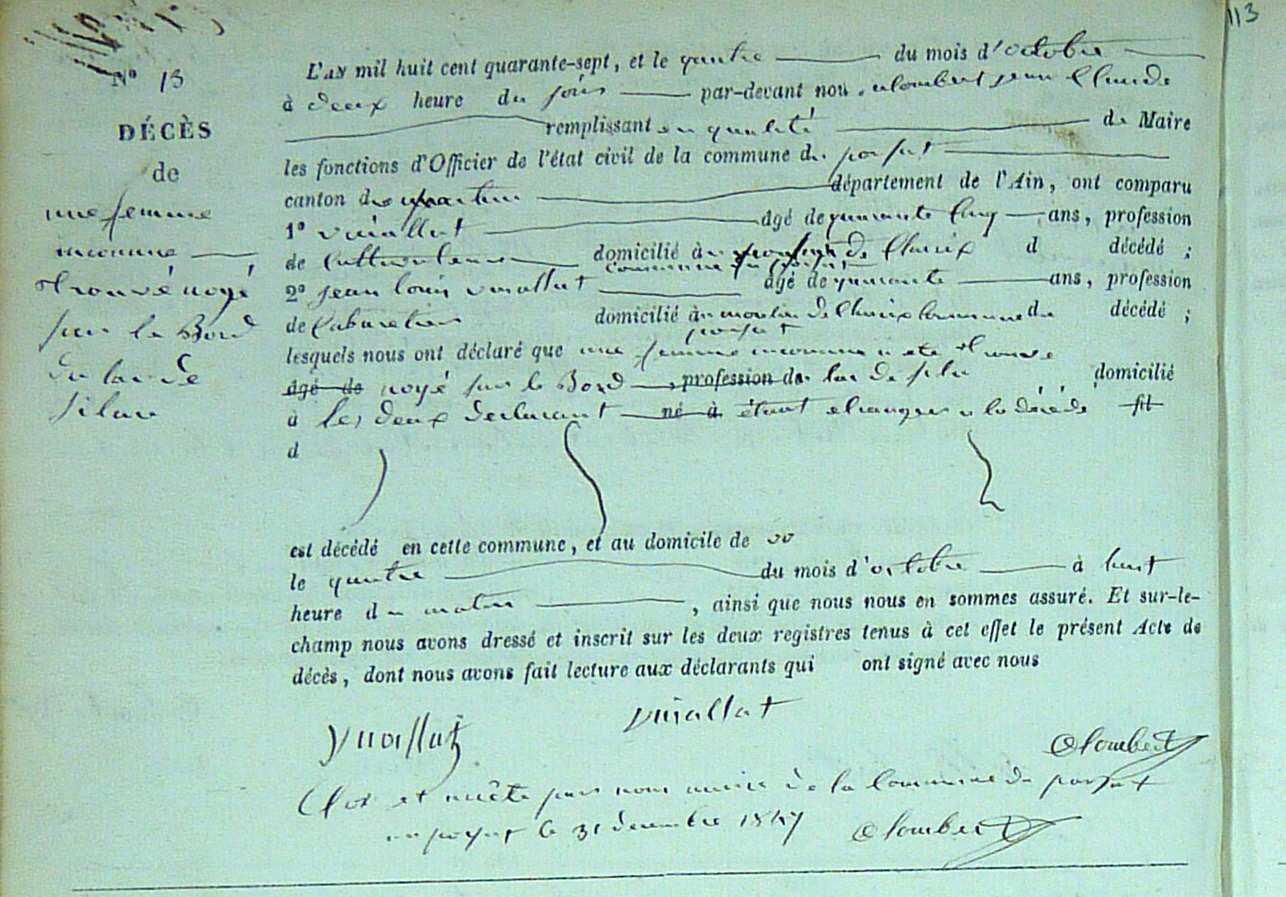 113
N° 13
DÉCÈS
de
une femme
inconnue
trouvé noyé
sur le Bord
du lac de
silan
L'an mil huit cent quarante-sept, et le quatre du mois d'octobre
à deux heure du soir par-devant nou jean Claude
remplissant en qualité de Maire
les fonctions d'Officier de l'état civil de la commune de
canton de département de l'Ain, ont comparu
1° Vuaillat âgé de quarante cinq ans, profession
de Cultivateur domicilié à de Charix d décédé ;
commune du
2° jean louis vuaillat âgé de quarante ans, profession
de Cabaretier domicilié à moulin de Charix Commune du décédé ;
lesquels nous ont déclaré que une femme inconnue a été trouvé
âgé de noyé sur le Bord profession de lac de silan domicilié
à les deux declarant né à étant etranger a la décédé fil
d
est décédé en cette commune, et au domicile de
le quatre du mois d'octobre à huit
heure du matin , ainsi que nous nous en sommes assuré. Et sur-le-
champ nous avons dressé et inscrit sur les deux registres tenus à cet effet le présent Acte de
décès, dont nous avons fait lecture aux déclarants qui ont signé avec nous
Vuaillat
vuaillat
Clos et arrêté par nous maire de la Commune de
le 31 decembre 1847